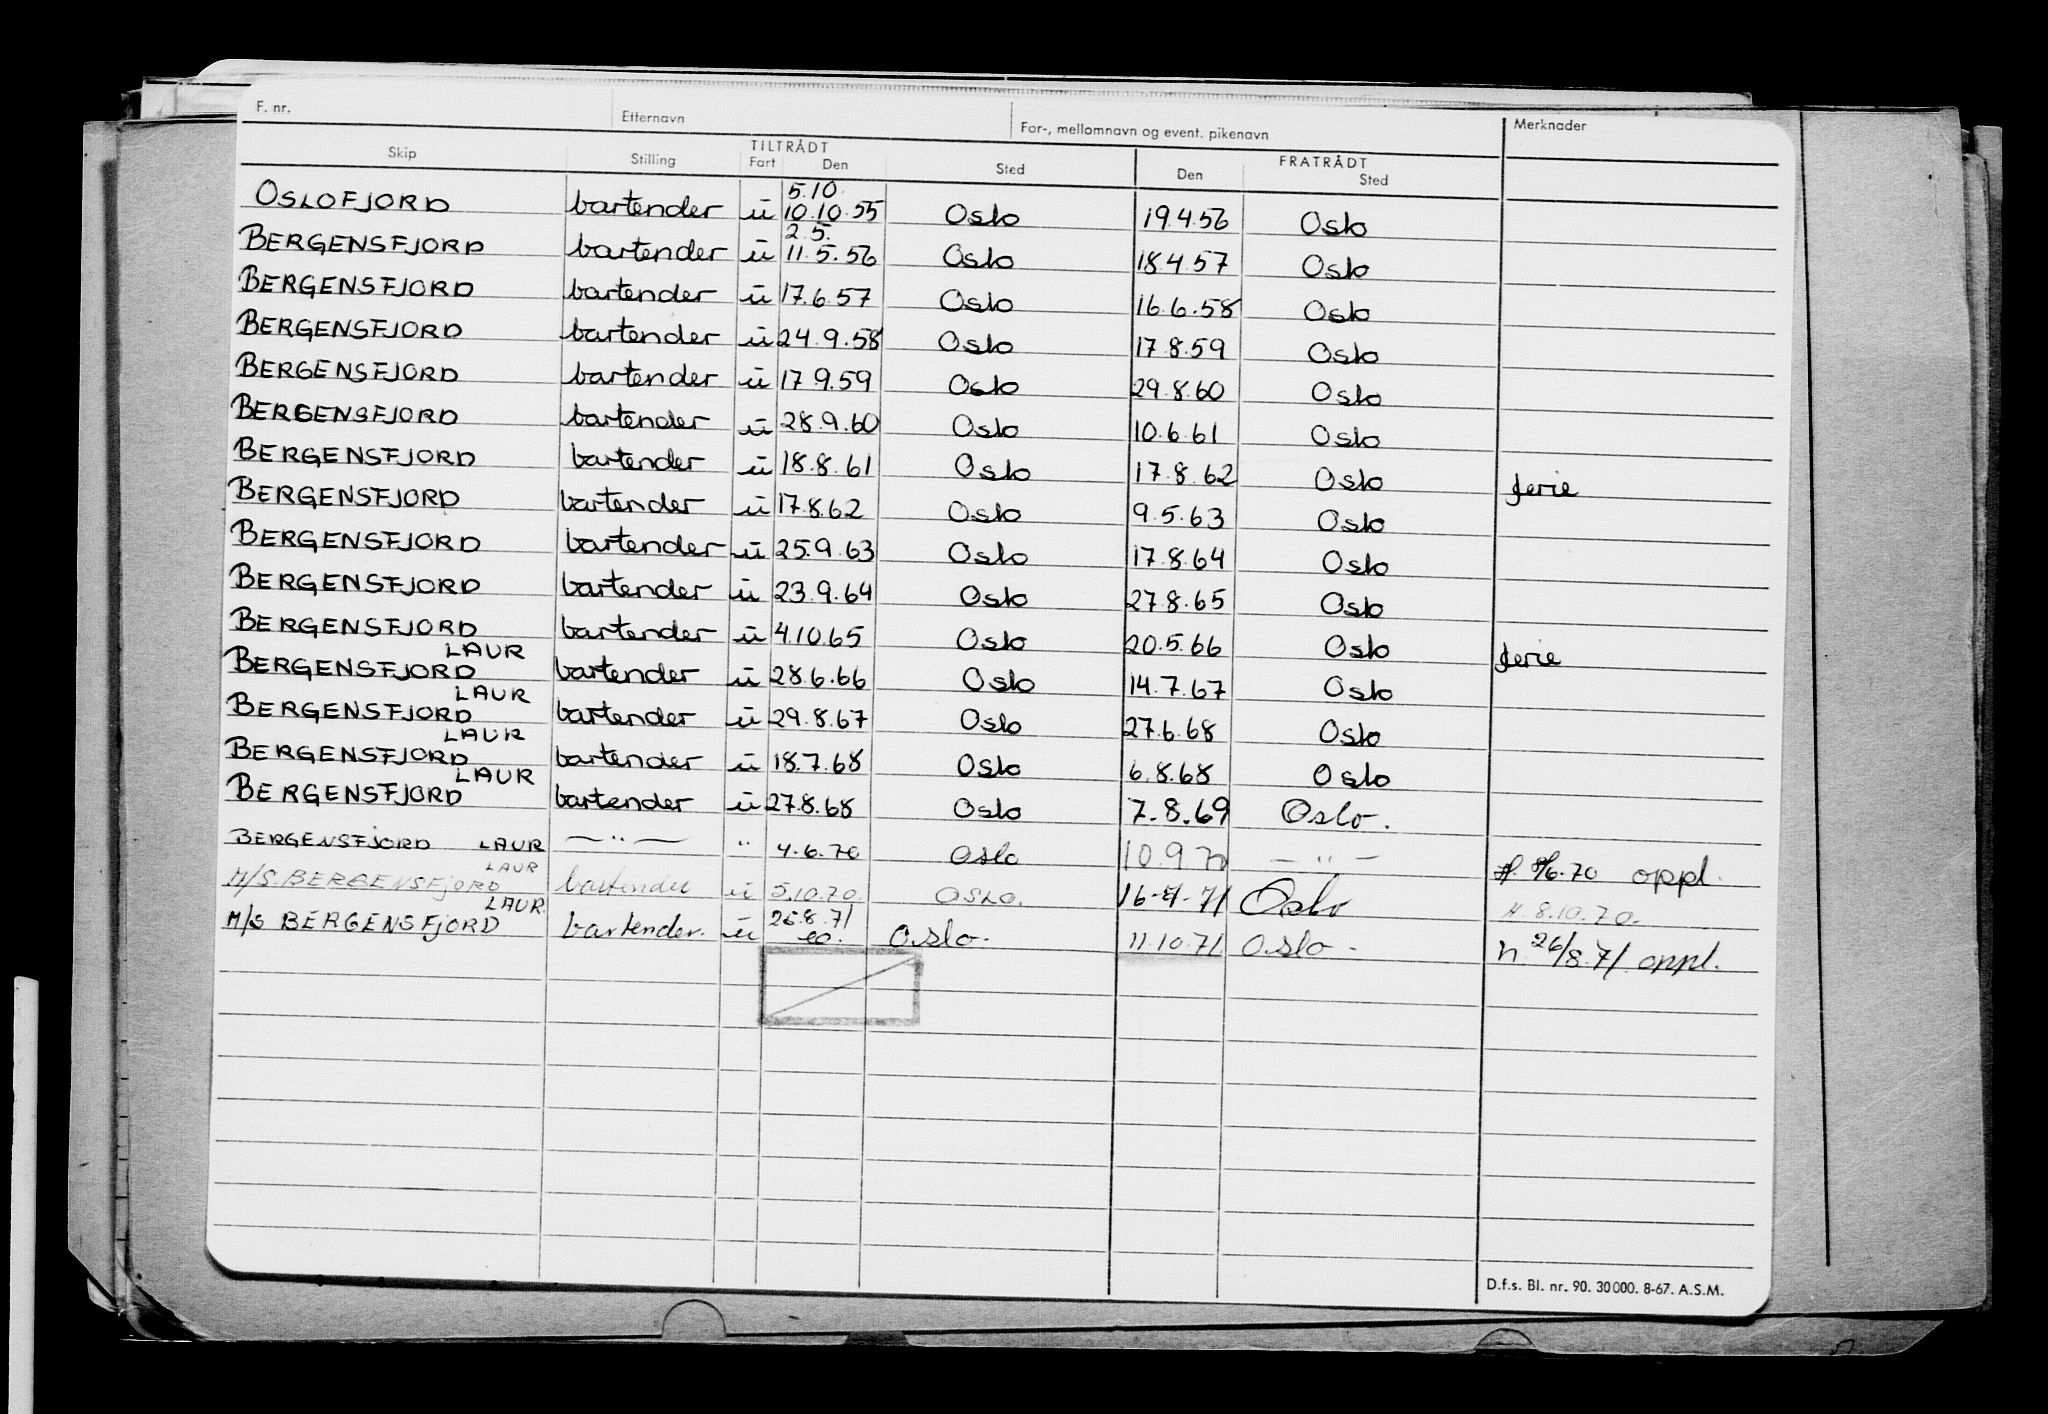 F. nr. Etternavn For-, mellomnavn og event. pikenavn Merknader
TILTRÅDT FRATRÅDT
Skip Stilling Fart Den Sted Den Sted
5.10.
OSLOFJORD bartender ū 10.10.55 Oslo 19.4.56 Oslo
2.5.
BERGENSFJORD bartender ū 11.5.56 Oslo 18.4.57 Oslo
BERGENSFJORD bartender ū 17.6.57 Oslo 16.6.58 Oslo
BERGENSFJORD bartender ū 24.9.58 Oslo 17.8.59 Oslo
BERGENSFJORD bartender ū 17.9.59 Oslo 29.8.60 Oslo
BERGENSFJORD bartender ū 28.9.60 Oslo 10.6.61 Oslo
BERGENSFJORD bartender ū 18.8.61 Oslo 17.8.62 Oslo ferie
BERGENSFJORD bartender ū 17.8.62 Oslo 9.5.63 Oslo
BERGENSFJORD bartender ū 25.9.63 Oslo 17.8.64 Oslo
BERGENSFJORD bartender ū 23.9.64 Oslo 27.8.65 Oslo
BERGENSFJORD bartender ū 4.10.65 Oslo 20.5.66 Oslo ferie
LAUR
BERGENSFJORD bartender ū 28.6.66 Oslo 14.7.67 Oslo
LAUR
BERGENSFJORD bartender ū 29.8.67 Oslo 27.6.68 Oslo
LAUR
BERGENSFJORD bartender ū 18.7.68 Oslo 6.8.68 Oslo
LAUR
BERGENSFJORD bartender ū 27.8.68 Oslo 7.8.69 Oslo.
BERGENSFJORD LAUR —"— " 4.6.70 Oslo 10.9.70 —"— 8/6.70 oppl.
LAUR
M/S. BERGENSFJORD bartender ū 5.10.70. OSLO. 71 Oslo 8.10.70.
LAUR.
M/S BERGENSFJORD bartender. ū 25.8.71 Oslo. 11.10.71 Oslo. n. 26/8.71 oppl.
D.f.s. Bl. nr. 90. 30000. 8-67. A.S.M.